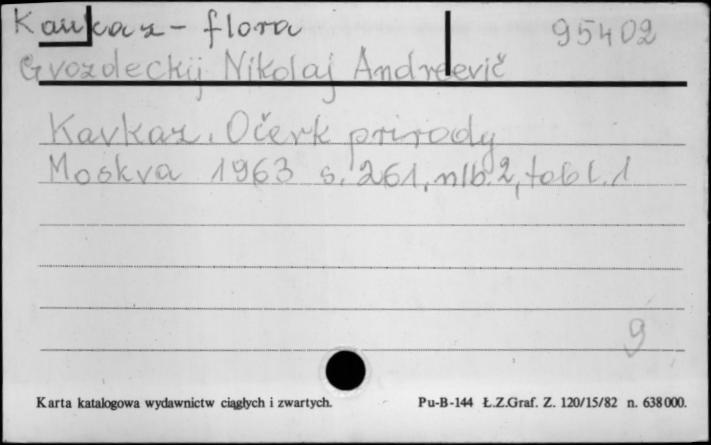 Kaukaz - flora 95402
Gvozdeckij Nikolaj Andreevič
Kavkaz. Očerk prirody
Moskva 1963 s. 261, nlb. 2, tabl. 1
9
Karta katalogowa wydawnictw ciągłych i zwartych. Pu-B-144 Ł.Z.Graf. Z. 120/15/82 n. 638000.